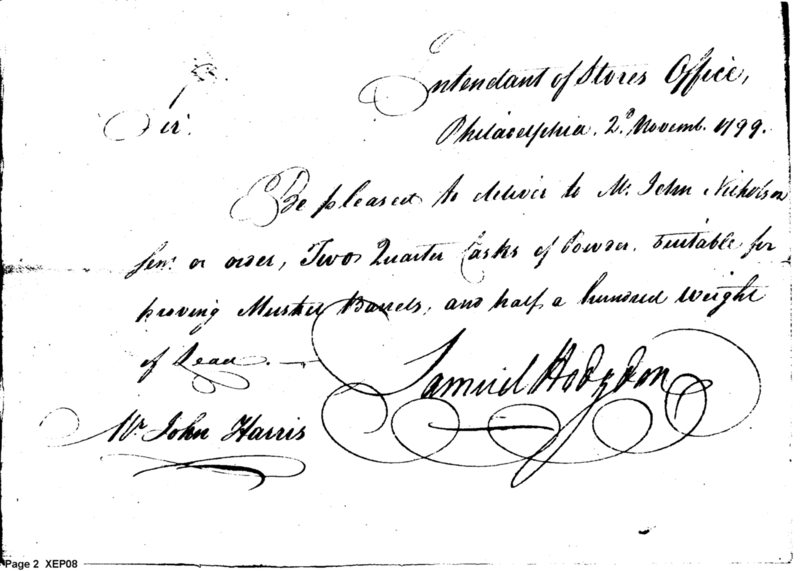 Intendant of Stores Office,
Philadelphia. 2d. Novemb. 1799.
Sir.
Be pleased to deliver to Mr. John Nicholson
Senr. or order, Two Quarter Casks of Powder. Suitable for
proving Musket Barrels, and half a hundred weight
of Lead. —
Samuel Hodgdon
Mr John Harris
Page 2 XEP08